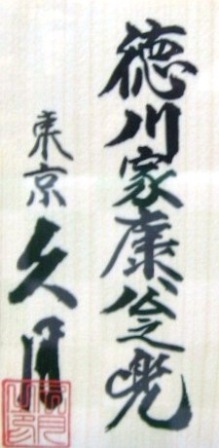 徳川家康公之兜
東京 久月